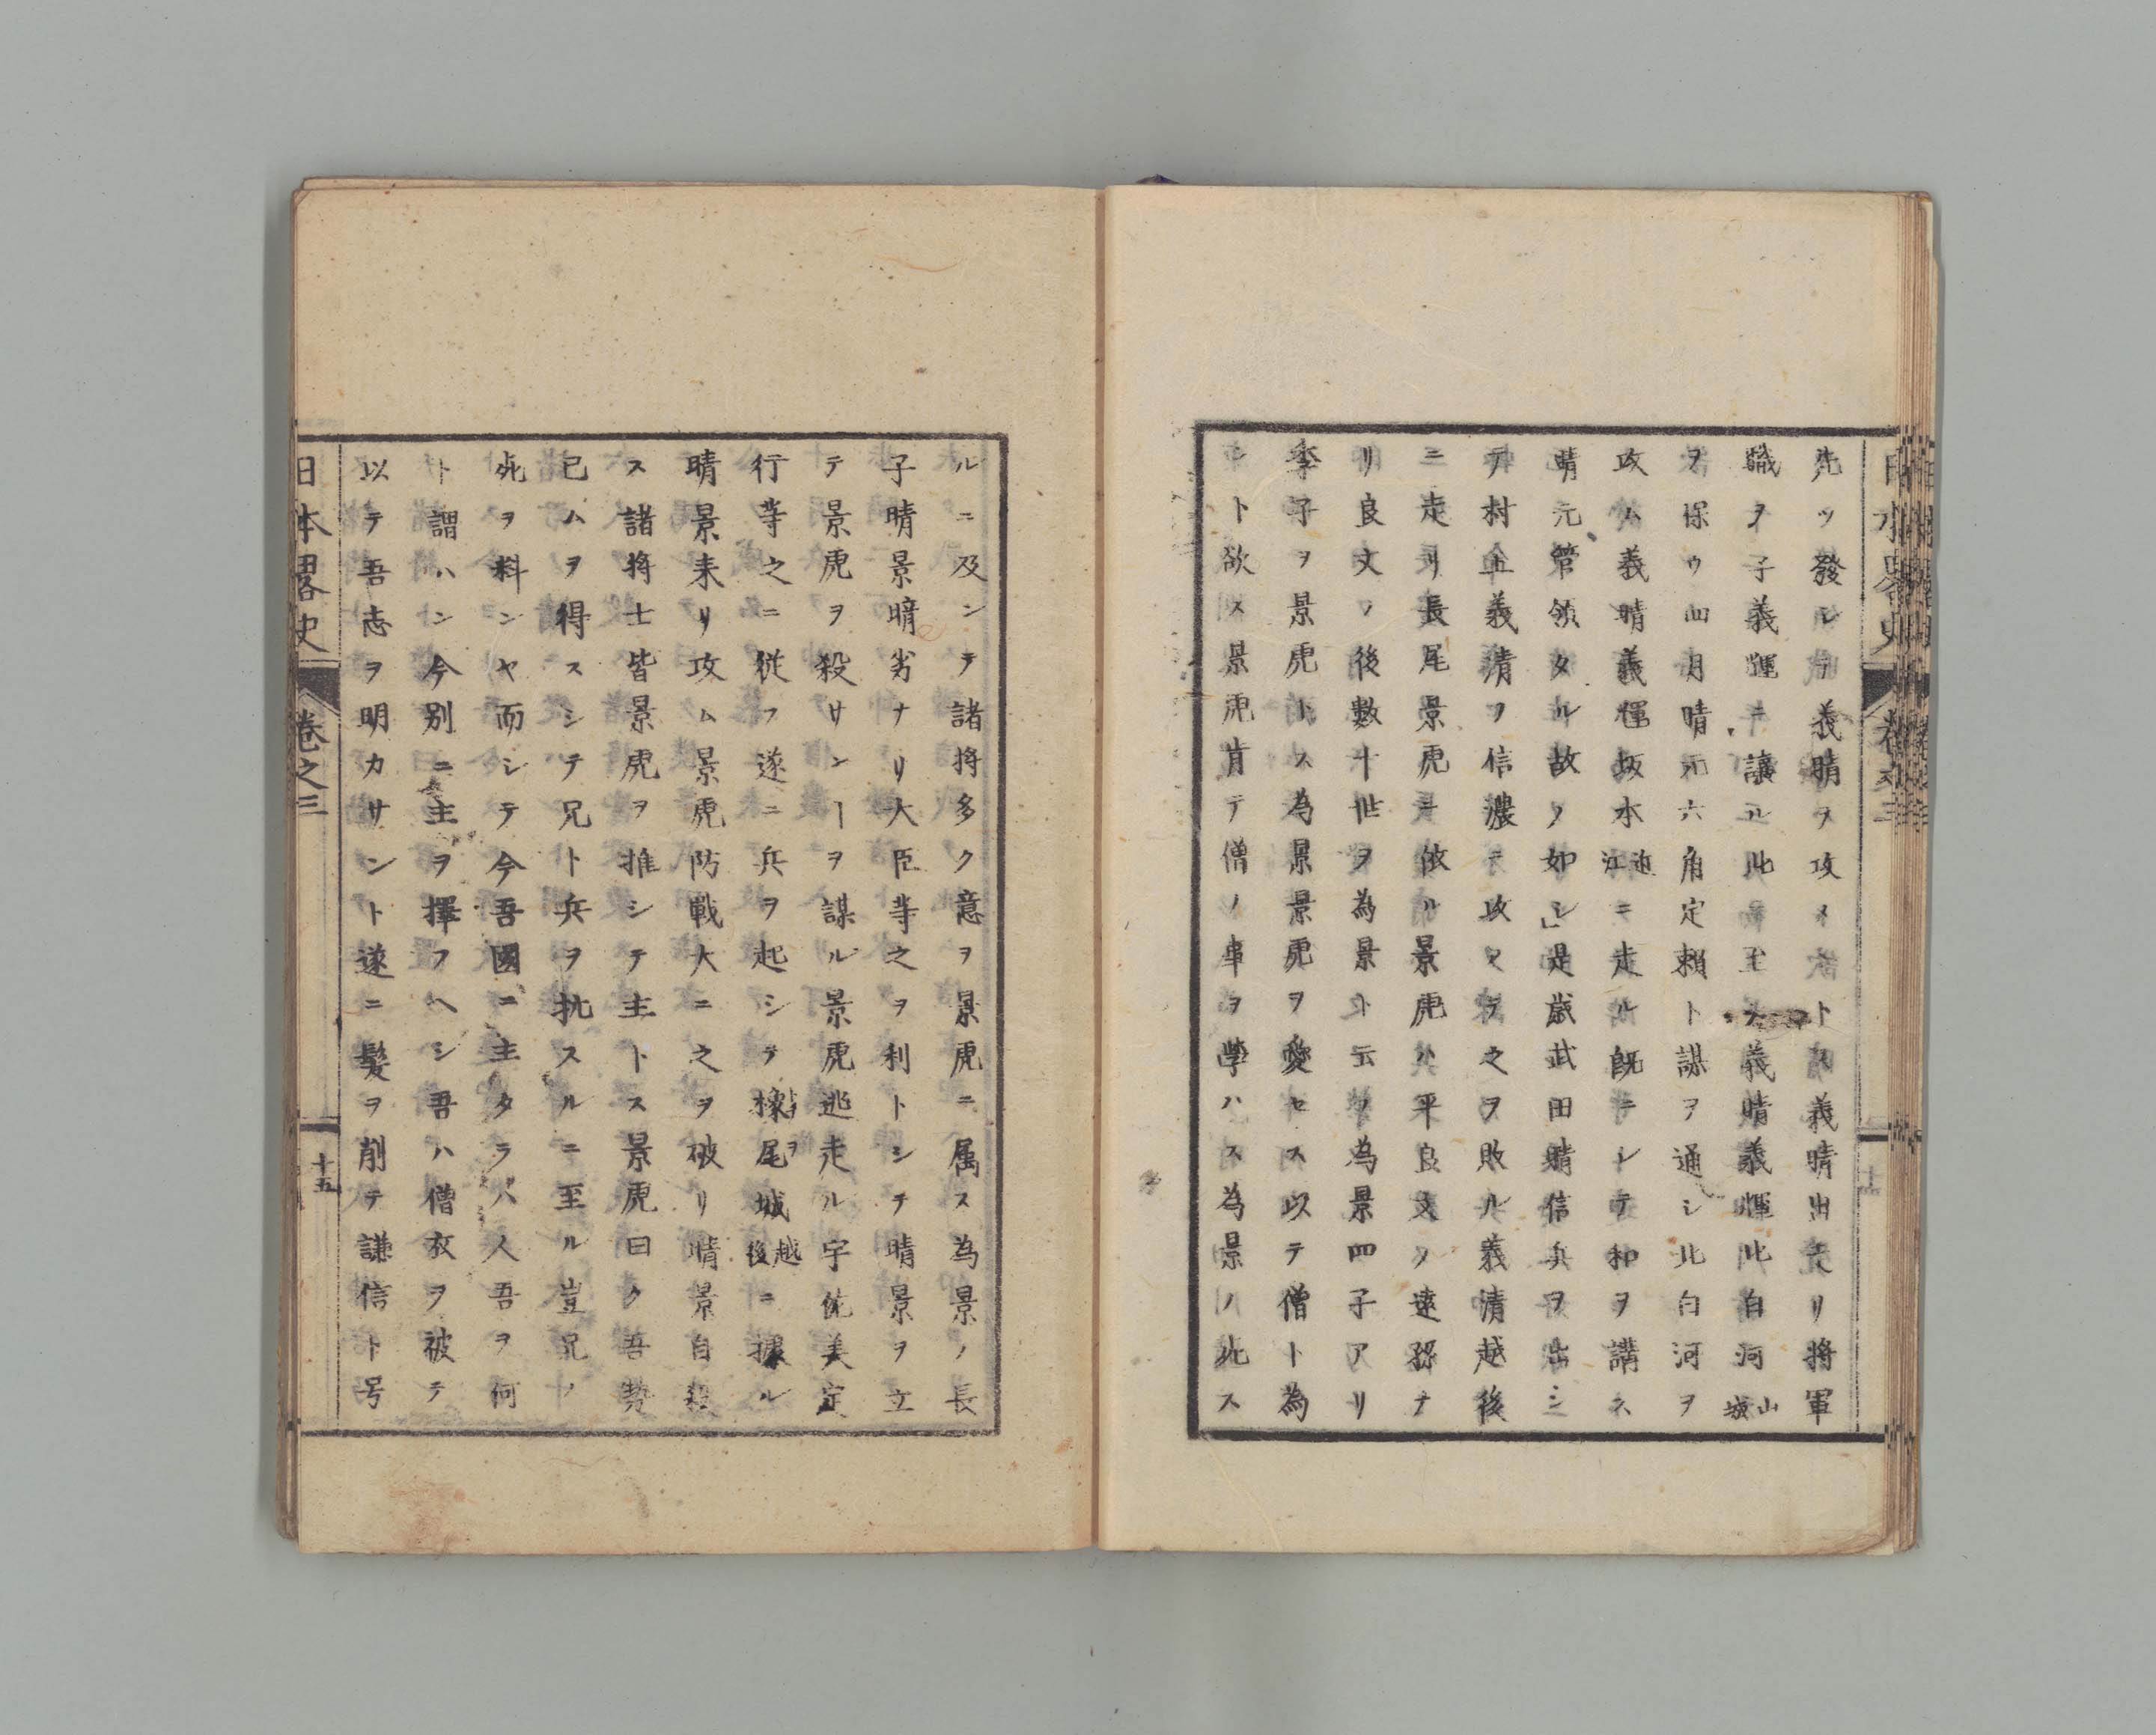 先ツ發シテ義晴ヲ攻メントス義晴出テリ將軍
職ヲ子義輝ニ讓ル此ニ至テ義晴義輝北白河山城
ヲ保ウ四月晴元六角定賴ト謀ヲ通シ北白河ヲ
攻ム義晴義輝坂本近江ニ走ル既ニシテ和ヲ講ス
晴元管領タル故ノ如シ」是歲武田晴信兵ヲ出シ
テ村上義淸ヲ信濃ニ攻メ之ヲ敗ル義淸越後
ニ走リ長尾景虎ニ依ル景虎ハ平良文ノ遠孫ナ
リ良文ノ後數十世ヲ為景ト云フ為景四子アリ
季子ヲ景虎トス為景景虎ヲ愛セス以テ僧ト為
シト欲ス景虎肯テ僧ノ事ヲ學ハス為景ノ死ス
ルニ及ンテ諸將多ク意ヲ景虎ニ属ス為景ノ長
子晴景暗劣ナリ大臣等之ヲ利トシテ晴景ヲ立
テ景虎ヲ殺サンーヲ謀ル景虎逃走ル宇佐美定
行等之ニ從フ遂ニ兵ヲ起シテ橡尾城越後ニ據ル
晴景来リ攻ム景虎防戰大ニ之ヲ破リ晴景自殺
ス諸將士皆景虎ヲ推シテ主トス景虎曰ク吾勢
已ムヲ得スシテ兄ト兵ヲ抗スルニ至ル豈兄ノ
死ヲ料ンヤ而シテ今吾國ニ主タラハ人吾ヲ何
ト謂ハン今別ニ主ヲ擇フヘシ吾ハ僧衣ヲ被テ
以テ吾志ヲ明カサント遂ニ髮ヲ削テ謙信ト号
日本畧史 卷之三 十五